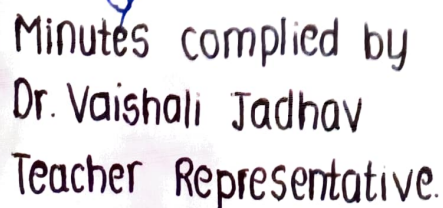 Minutes complied by
Dr. Vaishali Jadhav
Teacher Representative.